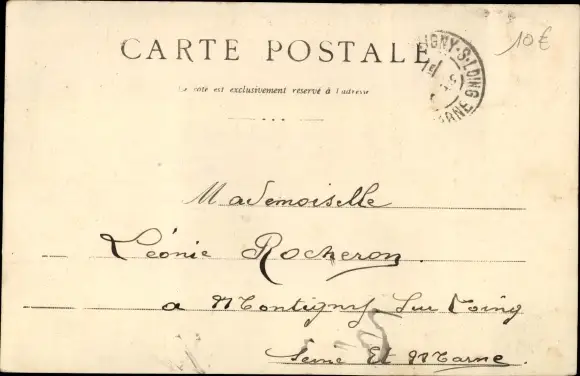 CARTE POSTALE
Ce côté est exclusivement réservé à l'adresse
10€
IGNY-S-LOING
Mademoiselle
Léonie Rocheron
a Montigny Sur Loing
Seine Et Marne.